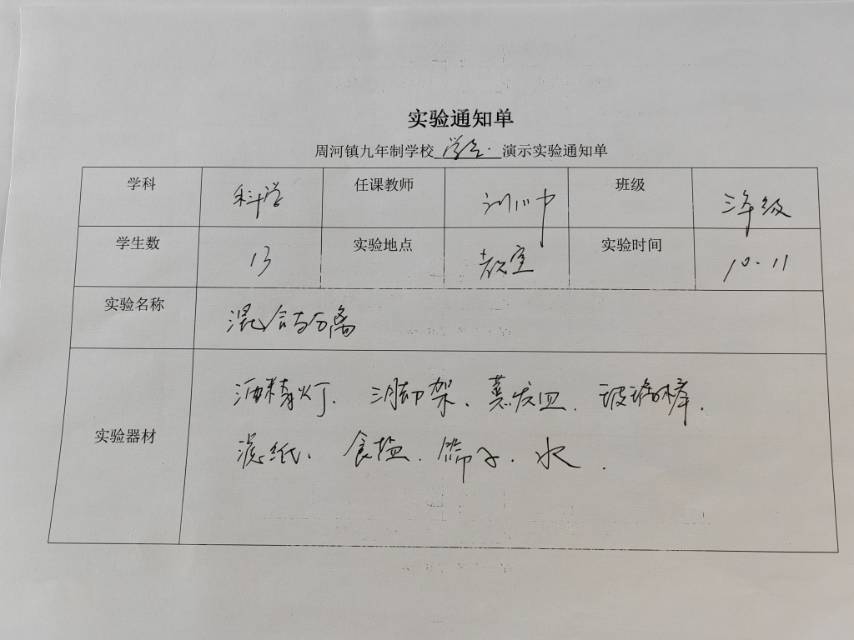 实验通知单
周河镇九年制学校 学生 演示实验通知单
学科 科学 任课教师 班级 三年级
学生数 13 实验地点 教室 实验时间 10.11
实验名称 混合与分离
实验器材 酒精灯、三脚架、蒸发皿、玻璃棒、
滤纸、食盐、筛子、水.